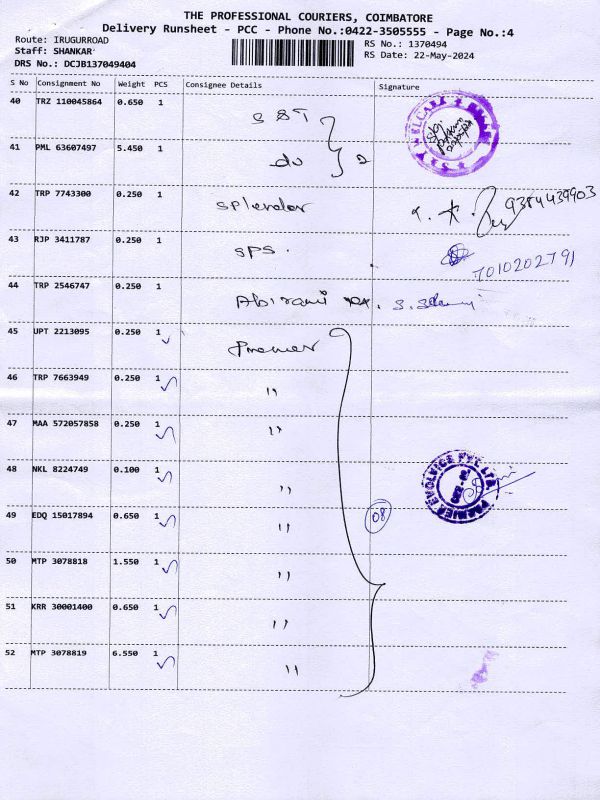 THE PROFESSIONAL COURIERS, COIMBATORE
Delivery Runsheet - PCC - Phone No.:0422-3505555 - Page No.:4
Route: IRUGURROAD
Staff: SHANKAR
DRS No.: DCJB137049404
RS No.: 1370494
RS Date: 22-May-2024
S No Consignment No Weight PCS Consignee Details Signature
40 TRZ 110045864 0.650 1 SST
41 PML 63607497 5.450 1 do 2
42 TRP 7743300 0.250 1 Splendor 9384439903
43 RJP 3411787 0.250 1 SPS. 7010202791
44 TRP 2546747 0.250 1 Abirami
45 UPT 2213095 0.250 1 Premier
46 TRP 7663949 0.250 1 "
47 MAA 572057858 0.250 1 "
48 NKL 8224749 0.100 1 "
49 EDQ 15017894 0.650 1 " 08
50 MTP 3078818 1.550 1 "
51 KRR 30001400 0.650 1 "
52 MTP 3078819 6.550 1 "
PREMIER EVOLVICS PVT LTD.